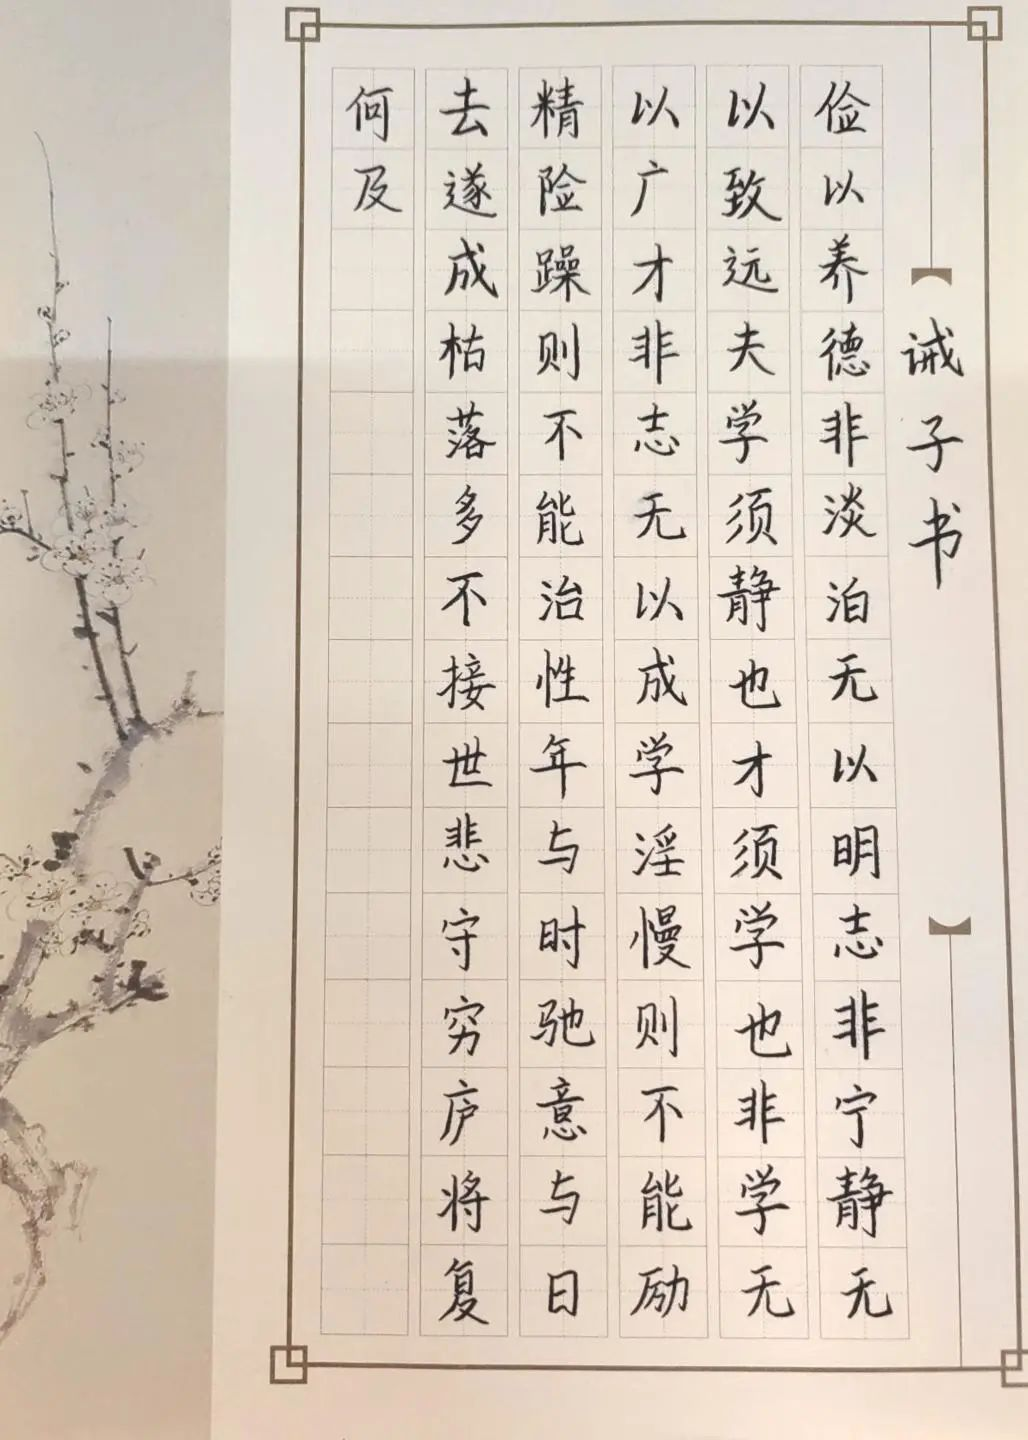 诫子书
俭以养德非淡泊无以明志非宁静无
以致远夫学须静也才须学也非学无
以广才非志无以成学淫慢则不能励
精险躁则不能治性年与时驰意与日
去遂成枯落多不接世悲守穷庐将复
何及